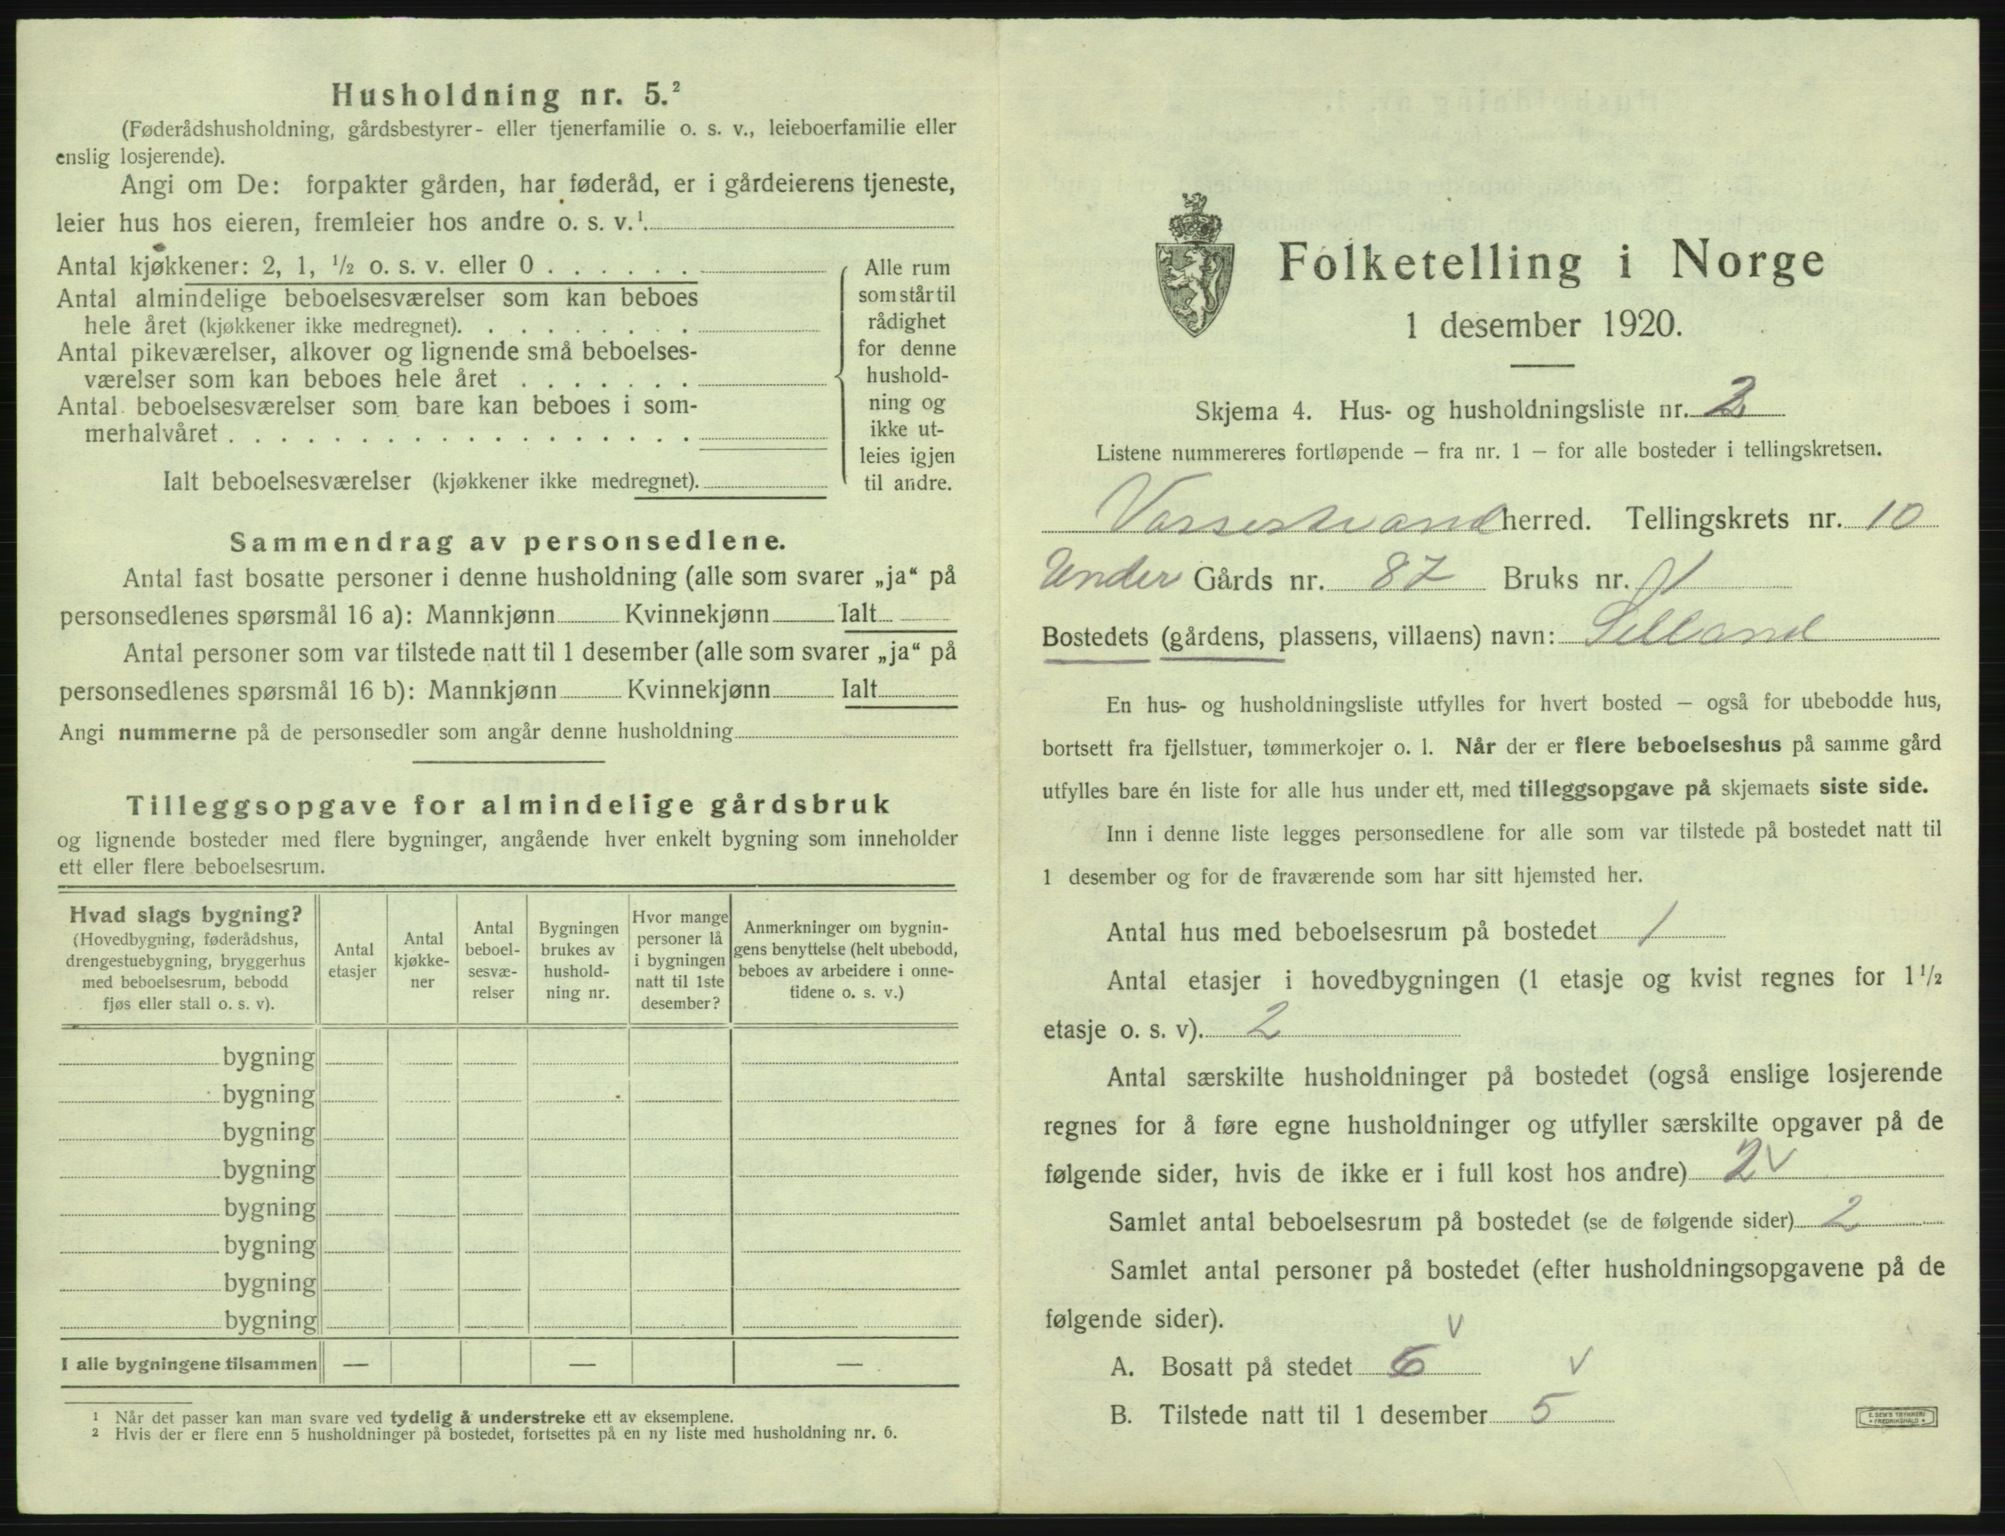 Husholdning nr. 5.²
(Føderådshusholdning, gårdsbestyrer- eller tjenerfamilie o. s. v., leieboerfamilie eller
enslig losjerende).
Angi om De: forpakter gården, har føderåd, er i gårdeierens tjeneste,
leier hus hos eieren, fremleier hos andre o. s. v.¹.
Antal kjøkkener: 2, 1, ½ o. s. v. eller 0 . . . . . .
Antal almindelige beboelsesværelser som kan beboes
hele året (kjøkkener ikke medregnet). . . . . . . . .
Antal pikeværelser, alkover og lignende små beboelses-
værelser som kan beboes hele året . . . . . . .
Antal beboelsesværelser som bare kan beboes i som-
merhalvåret . . . . . . . . . . . . . . . . . .
Ialt beboelsesværelser (kjøkkener ikke medregnet).
Alle rum
som står til
rådighet
for denne
hushold-
ning og
ikke ut-
leies igjen
til andre.
Sammendrag av personsedlene.
Antal fast bosatte personer i denne husholdning (alle som svarer „ja“ på
personsedlenes spørsmål 16 a): Mannkjønn Kvinnekjønn Ialt
Antal personer som var tilstede natt til 1 desember (alle som svarer „ja“ på
personsedlenes spørsmål 16 b): Mannkjønn Kvinnekjønn Ialt
Angi nummerne på de personsedler som angår denne husholdning
Tilleggsopgave for almindelige gårdsbruk
og lignende bosteder med flere bygninger, angående hver enkelt bygning som inneholder
ett eller flere beboelsesrum.
Hvad slags bygning?
(Hovedbygning, føderådshus,
drengestuebygning, bryggerhus
med beboelsesrum, bebodd
fjøs eller stall o. s. v).
Antal
etasjer
Antal
kjøkke-
ner
Antal
beboel-
sesvæ-
relser
Bygningen
brukes av
hushold-
ning nr.
Hvor mange
personer lå
i bygningen
natt til 1ste
desember?
Anmerkninger om bygnin-
gens benyttelse (helt ubebodd,
beboes av arbeidere i onne-
tidene o. s. v.)
bygning
bygning
bygning
bygning
bygning
bygning
bygning
bygning
I alle bygningene tilsammen — — —
¹ Når det passer kan man svare ved tydelig å understreke ett av eksemplene.
² Hvis der er flere enn 5 husholdninger på bostedet, fortsettes på en ny liste med husholdning nr. 6.
Folketelling i Norge
1 desember 1920.
Skjema 4. Hus- og husholdningsliste nr. 2
Listene nummereres fortløpende — fra nr. 1 — for alle bosteder i tellingskretsen.
Vossestrand herred. Tellingskrets nr. 10
Under Gårds nr. 87 Bruks nr. 1
Bostedets (gårdens, plassens, villaens) navn: Selland
En hus- og husholdningsliste utfylles for hvert bosted — også for ubebodde hus,
bortsett fra fjellstuer, tømmerkojer o. l. Når der er flere beboelseshus på samme gård
utfylles bare én liste for alle hus under ett, med tilleggsopgave på skjemaets siste side.
Inn i denne liste legges personsedlene for alle som var tilstede på bostedet natt til
1 desember og for de fraværende som har sitt hjemsted her.
Antal hus med beboelsesrum på bostedet 1
Antal etasjer i hovedbygningen (1 etasje og kvist regnes for 1½
etasje o. s. v). 2
Antal særskilte husholdninger på bostedet (også enslige losjerende
regnes for å føre egne husholdninger og utfyller særskilte opgaver på de
følgende sider, hvis de ikke er i full kost hos andre) 2 v
Samlet antal beboelsesrum på bostedet (se de følgende sider) 2
Samlet antal personer på bostedet (efter husholdningsopgavene på de
følgende sider). v
A. Bosatt på stedet 6 v
B. Tilstede natt til 1 desember 5
E. SEM'S TRYKKERI
FREDRIKSHALD